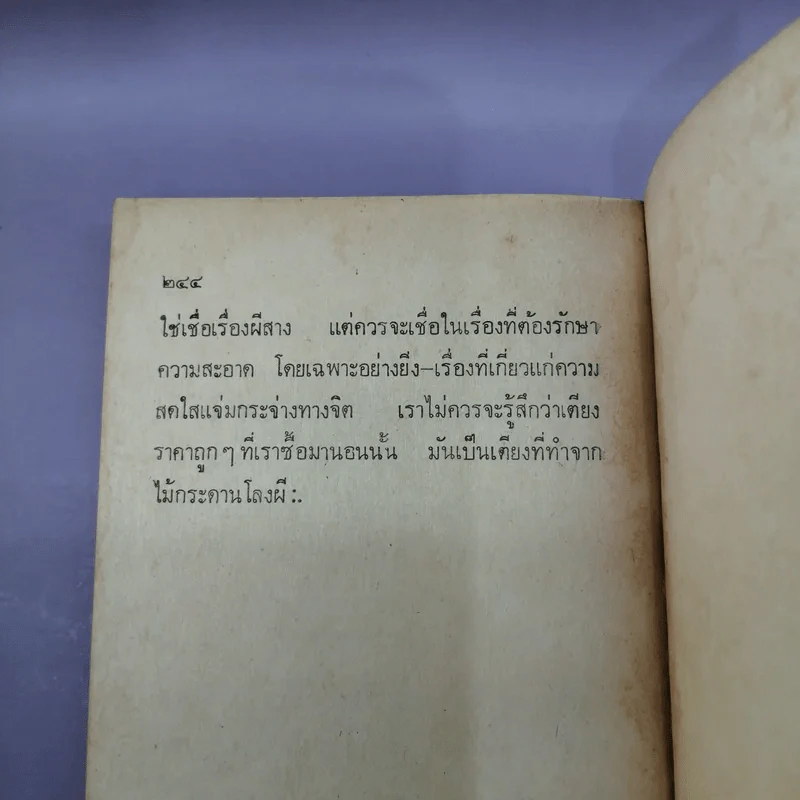 ๒๔๔
ใช่เชื่อเรื่องผีสาง แต่ควรจะเชื่อในเรื่องที่ต้องรักษา
ความสะอาด โดยเฉพาะอย่างยิ่ง–เรื่องที่เกี่ยวแก่ความ
สดใสแจ่มกระจ่างทางจิต เราไม่ควรจะรู้สึกว่าเตียง
ราคาถูก ๆ ที่เราซื้อมานอนนั้น มันเป็นเตียงที่ทำจาก
ไม้กระดานโลงผี :.